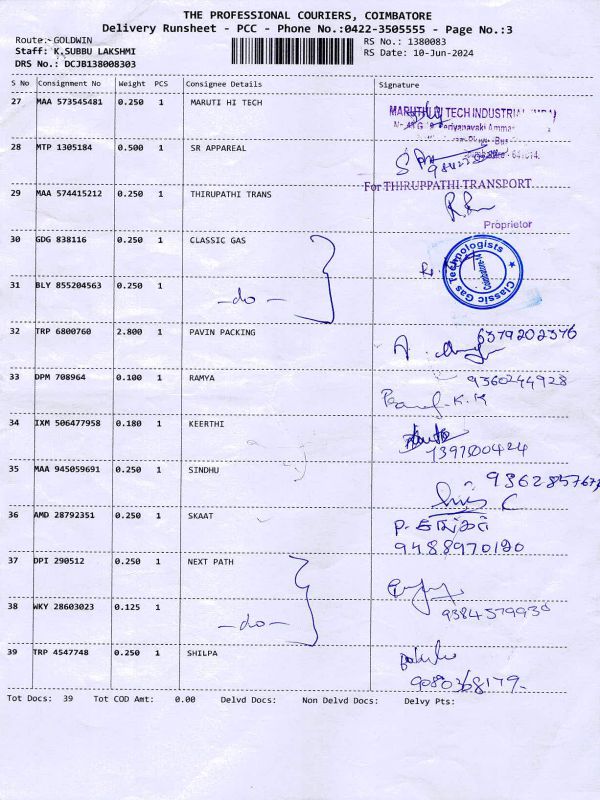 THE PROFESSIONAL COURIERS, COIMBATORE
Delivery Runsheet - PCC - Phone No.:0422-3505555 - Page No.:3
Route:- GOLDWIN
Staff: K.SUBBU LAKSHMI
DRS No.: DCJB138008303
RS No.: 1380083
RS Date: 10-Jun-2024
S No Consignment No Weight PCS Consignee Details Signature
27 MAA 573545481 0.250 1 MARUTI HI TECH
28 MTP 1305184 0.500 1 SR APPAREAL
29 MAA 574415212 0.250 1 THIRUPATHI TRANS
For THIRUPPATHI TRANSPORT
Proprietor
30 GDG 838116 0.250 1 CLASSIC GAS
Classic Gas Technologists
31 BLY 855204563 0.250 1 -do-
32 TRP 6800760 2.800 1 PAVIN PACKING 6379202376
33 DPM 708964 0.100 1 RAMYA 9360244928
34 IXM 506477958 0.180 1 KEERTHI 7397100424
35 MAA 945059691 0.250 1 SINDHU
36 AMD 28792351 0.250 1 SKAAT
9488970190
37 DPI 290512 0.250 1 NEXT PATH
38 WKY 28603023 0.125 1 -do-
39 TRP 4547748 0.250 1 SHILPA
9080368179
Tot Docs: 39 Tot COD Amt: 0.00 Delvd Docs: Non Delvd Docs: Delvy Pts: